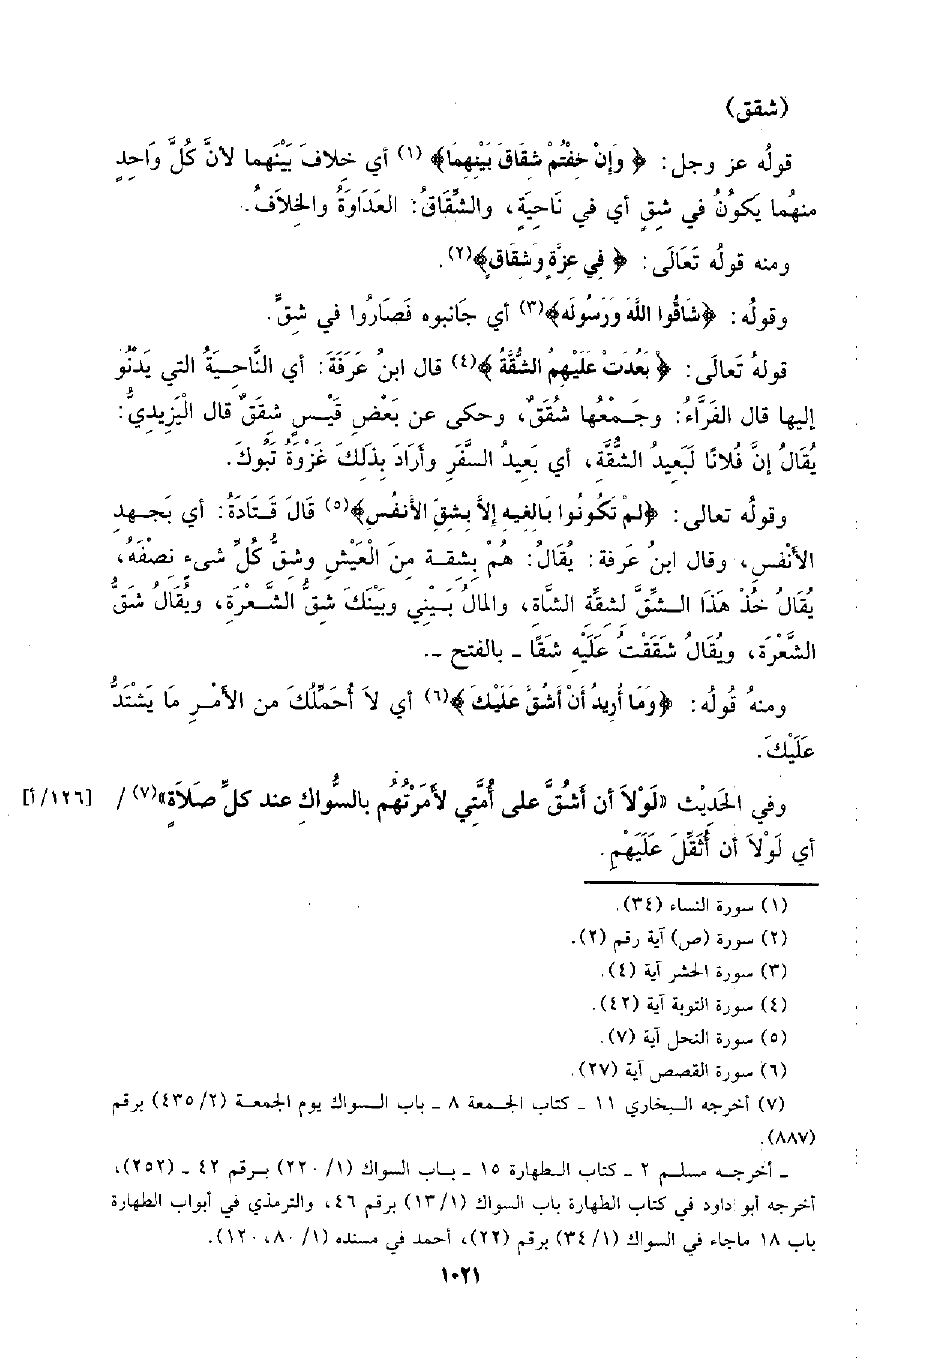 (شقق)
قولُه عز وجل: ﴿ وَإِنْ خِفْتُمْ شِقَاقَ بَيْنِهِمَا﴾ (١) أي خِلافَ بَيْنَهما لأنَّ كُلَّ وَاحِدٍ
منهُما يَكُونُ في شِقٍ أي في نَاحِيَةٍ، والشِّقَاقُ: العَدَاوَةُ والخِلاَفُ.
ومنه قولُه تَعَالَى: ﴿ فِي عِزَّةٍ وَشِقَاقٍ﴾(٢).
وقولُه: ﴿شَاقُّوا اللَّهَ وَرَسُولَه﴾(٣) أي جَانبوه فَصَارُوا في شِقٍّ.
قولهُ تَعَالَى: ﴿ بَعُدَتْ عَلَيْهِمُ الشُّقَّةُ ﴾(٤) قال ابنُ عَرَفَةَ: أي النَّاحِيَةُ التي يَدْنُو
إليها قال الفَرَّاءُ: وجَمْعُها شُقَقٌ، وحكى عن بَعْضِ قَيْسٍ شِقَقٌ قال الْيَزِيديُّ:
يُقَالُ إنَّ فُلانًا لَبَعِيدُ الشُّقَّةِ، أي بَعِيدُ السَّفَرِ وأرَادَ بِذَلِكَ غَزْوَةَ تَبُوكَ.
وقولُه تعالى: ﴿لَمْ تَكُونُوا بَالِغِيهِ إِلاَّ بِشِقِّ الأَنفُسِ﴾(٥) قَالَ قَتَادَةُ: أي بجَهدِ
الأنْفسِ، وقال ابنُ عَرفة: يُقَالُ: هُمْ بِشقة منَ الْعَيْشِ وشقُّ كُلِّ شيءٍ نصْفَهُ،
يُقَالُ خُذْ هَذَا الشِّقَّ لشقَّةِ الشَّاة، والمالُ بَيْنِي وبَيْنَكَ شقُّ الشَّعْرَةِ، ويُقَالُ شَقَّ
الشَّعْرَة، ويُقَالُ شَقَقْتُ عَلَيْهِ شَقًا ـ بالفتح ـ.
ومنهُ قُولُه: ﴿وَمَا أُرِيدُ أَنْ أَشُقَّ عَلَيْكَ ﴾(٦) أي لاَ أُحَمِّلُكَ من الأمْرِ مَا يَشْتَدُّ
عَلَيْكَ.
وفي الحَدِيْث «لَوْلاَ أن أشُقَّ على أُمَّتي لأمَرْتُهُم بالسِّواك عند كلِّ صلاَةٍ»(٧) / [١٢٦/أ]
أي لَوْلاَ أن أُثَقِّلَ عَلَيْهِم.
(١) سورة النساء (٣٤).
(٢) سورة (ص) آية رقم (٢).
(٣) سورة الحشر آية (٤).
(٤) سورة التوبة آية (٤٢).
(٥) سورة النحل آية (٧).
(٦) سورة القصص آية (٢٧).
(٧) أخرجه البخاري ١١ ـ كتاب الجمعة ٨ ـ باب السواك يوم الجمعة (٤٣٥/٢) برقم
(٨٨٧).
ـ أخرجه مسلم ٢ ـ كتاب الطهارة ١٥ ـ باب السواك (٢٢٠/١) برقم ٤٢ ـ (٢٥٢)،
أخرجه أبو داود في كتاب الطهارة باب السواك (١٣/١) برقم ٤٦، والترمذي في أبواب الطهارة
باب ١٨ ماجاء في السواك (٣٤/١) برقم (٢٢)، أحمد في مسنده (٨٠/١، ١٢٠).
١٠٢١